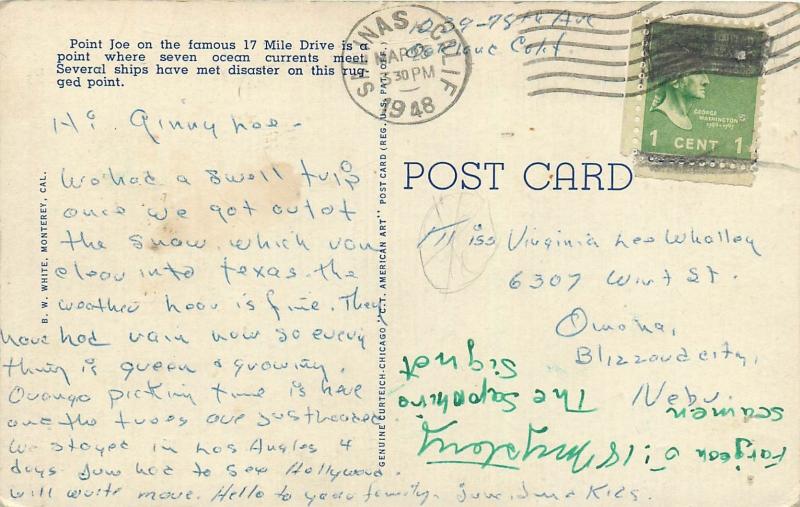 Point Joe on the famous 17 Mile Drive is a
point where seven ocean currents meet.
Several ships have met disaster on this rug-
ged point.
B. W. WHITE, MONTEREY, CAL.
GENUINE CURTEICH-CHICAGO "C.T. AMERICAN ART" POST CARD (REG. U.S. PAT. OFF.)
SALINAS, CALIF
MAR 23
30 PM
1948
78th Ave
GEORGE
WASHINGTON
1 CENT 1
POST CARD
Hi Ginny Lee -
We had a swell trip
once we got out of
the snow, which ran
clear into Texas. The
weather hear is fine. They
have had rain now so every
thing is green & growing.
Orange picking time is here
and the trees are just loaded.
We stayed in Los Angles 4
days June had to see Hollywood.
Will write more. Hello to your family.
Miss Virginia Lee Whalley
6307 Wirt St.
Omaha,
Blizzard city,
Nebr.
Farjeon
5:18 Mystery
The Sapphire
Signet